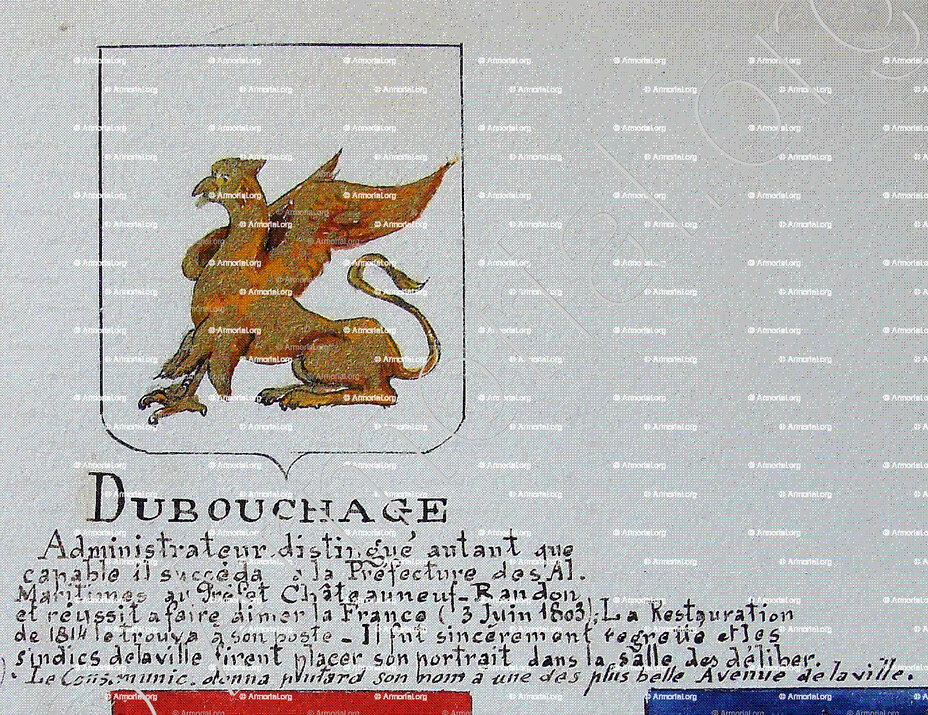 DUBOUCHAGE
Administrateur distingué autant que
capable il succéda à la Préfecture des Al.
Maritimes au Préfet Châteauneuf-Randon
et réussit a faire aimer la France (3 Juin 1803); La Restauration
de 1814 le trouva a son poste - Il fut sincerement regretté et les
sindics de la ville firent placer son portrait dans la salle des déliber.
). Le Cons. munic. donna plutard son nom a une des plus belle Avenue de la ville.
© Armorial.org